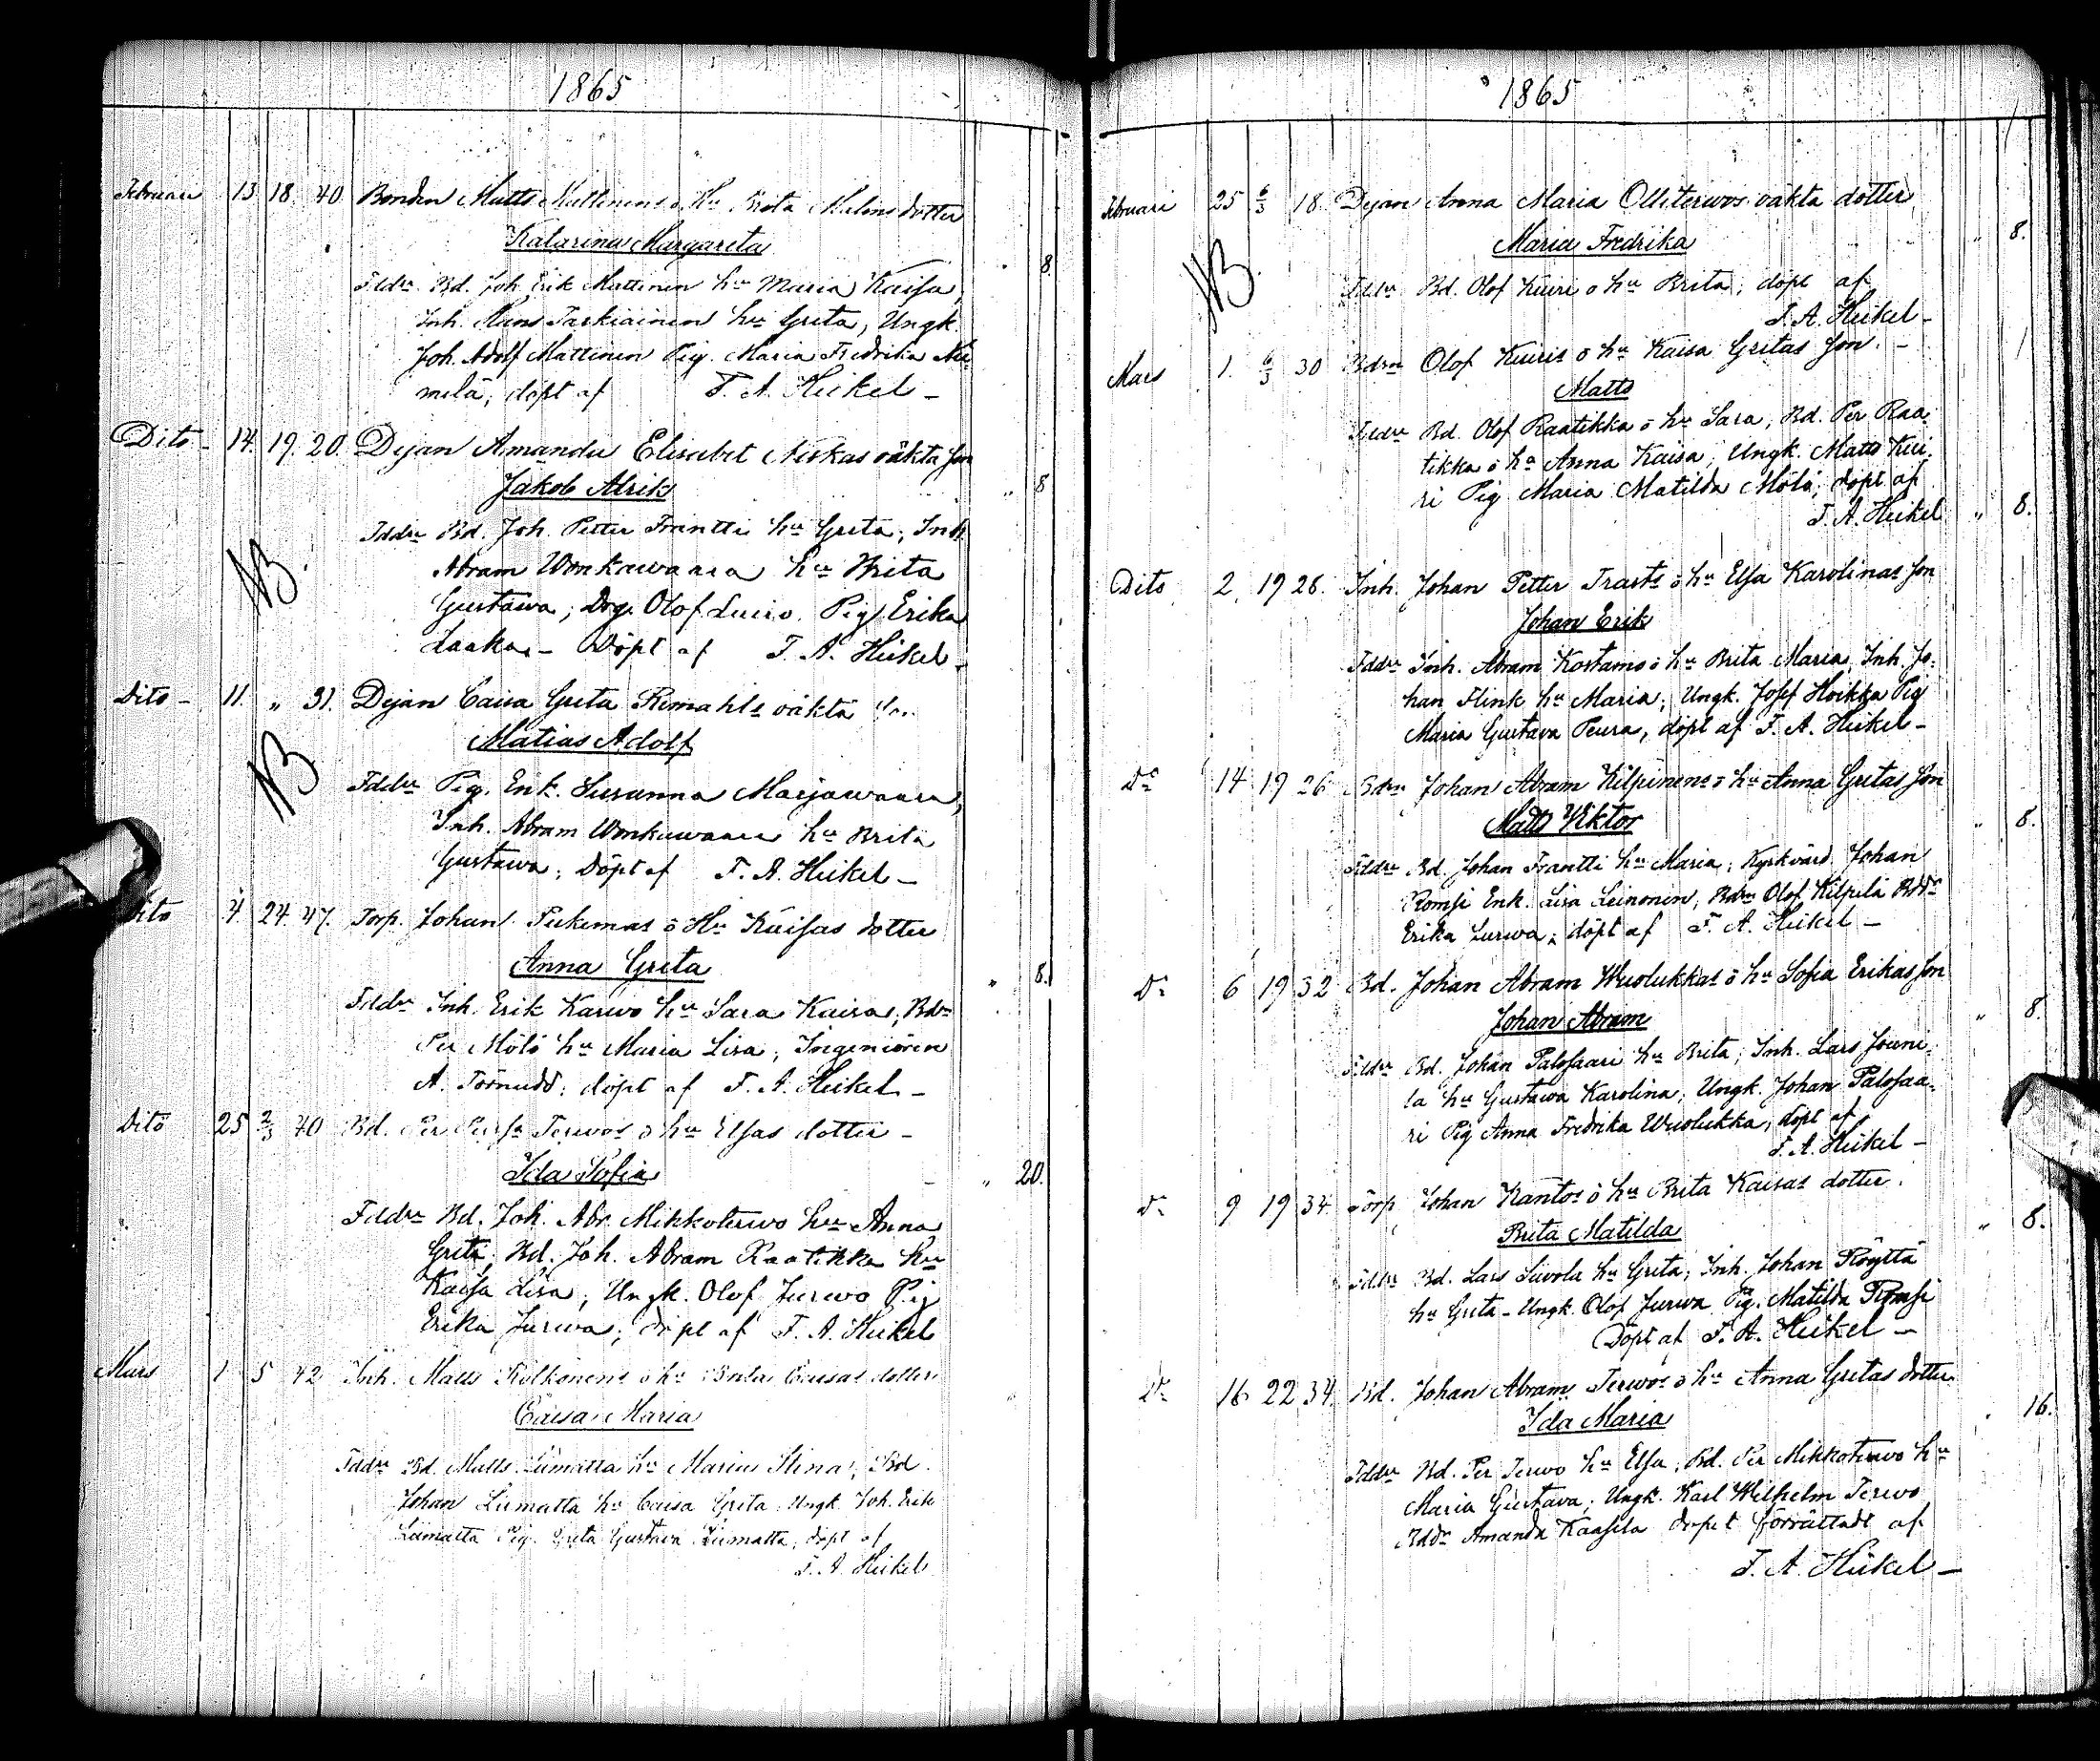 1865
Februari 13 18. 40. Bonden Matts Mattinens o Hu Brita Malins dotter
Katarina Margareta
8.
Fddr Bd. Joh. Erik Mattinen hu Maria Kaisa,
Inh. Hans Tarkiainen hu Greta, Ungk.
Joh. Adolf Mattinen Pig. Maria Fredrika Nie-
melä; döpt af F. A. Heikel –
Dito – 14. 19. 20. Dejan Amanda Elisabet Niskas oäkta son
Jakob Alrik
„ 8
Fddr Bd. Joh. Petter Frantti hu Greta; Inh.
NB. Abram Wonkawaara hu Brita
Gustawa; Drg. Olof Luiro. Pig. Erika
Laaka. – Döpt af F. A. Heikel.
Dito – 11. „ 31. Dejan Caisa Greta Rimahls oäkta
Matias Adolf
NB Fddr Pig. Enk. Susanna Marjawaara,
Inh. Abram Wonkawaara hu Brita
Gustawa; Döpt af F. A. Heikel –
Dito 4. 24. 47. Torp. Johan Pukemas o Hu Kaisas dotter
Anna Greta
„ 8.
Fddr Inh. Erik Karwo hu Sara Kaisa; Bdn
Per Mölö hu Maria Lisa; Ingeniören
A. Törnudd; döpt af F. A. Heikel –
Dito 25 2/3 40 Bd. Per Terwos o hu Elsas dotter –
Ida Sofia
– „ 20.
Fddr Bd. Joh. Abr. Mikkoterwo hu Anna
Greta; Bd. Joh. Abram Raatikka hu
Kaisa Lisa; Ungk. Olof Jurwo Pig
Erika Jurwa; döpt af F. A. Heikel
Mars 1 5 42 Inh. Matts Kolkonens o hu Brita Caisas dotter
Caisa Maria
Fddr Bd. Matts Liimatta hu Maria Stina; Bd.
Johan Liimatta hu Caisa Greta Ungk. Joh. Erik
Liimatta Pig. Greta Gustava Liimatta, döpt af
F. A. Heikel
1865
Februari 25 6/3 18. Dejan Anna Maria Olliterwos oäkta dotter
Maria Fredrika
„ 8.
NB. Fddr Bd. Olof Kuiri o hu Brita; döpt af
F. A. Heikel –
Mars 1. 6/3 30 Bdn Olof Kuiris o hu Kaisa Gretas son. –
Matts
Fddr Bd. Olof Raatikka o hu Sara; Bd. Per Raa-
tikka o hu Anna Kaisa; Ungk. Matts Kui-
ri Pig Maria Matilda Mölö; döpt af
F. A. Heikel „ 8.
Dito 2. 19 28. Inh. Johan Petter Trasts o hu Elsa Karolinas son
Johan Erik
Fddr Inh. Abram Kostamo o hu Brita Maria, Inh. Jo-
han Flink hu Maria; Ungk. Josef Hoikka Pig
Maria Gustava Peura, döpt af F. A. Heikel –
Do 14 19 26 Bdn Johan Abram Kilpinens o hu Anna Gretas son
Matts Viktor
„ 8.
Fddr Bd. Johan Frantti hu Maria; Kyrkvärd Johan
Romsi Enk. Lisa Leinonen; Bdn Olof Kilpelä Bddr
Erika Jurwa; döpt af F. A. Heikel –
Do 6 19 32 Bd. Johan Abram Wuolukkas o hu Sofia Erikas son
Johan Abram
„ 8.
Fddr Bd. Johan Palosaari hu Brita; Inh. Lars Jouni-
la hu Gustawa Karolina; Ungk. Johan Palosaa-
ri Pig Anna Fredrika Wuolukka; döpt af
F. A. Heikel –
Do 9 19 34 Torp. Johan Kantos o hu Brita Kaisas dotter.
Brita Matilda
„ 8.
Fddr Bd. Lars Suvola hu Greta; Inh. Johan Röyttä
hu Greta – Ungk. Olof Jurwa Pig. Matilda Romsi
Döpt af F. A. Heikel –
Do 16 22 34. Bd. Johan Abram Terwos o hu Anna Gretas dotter
Ida Maria
16.
Fddr Bd. Per Terwo hu Elsa; Bd. Per Mikkoterwo hu
Maria Gustava; Ungk. Karl Wilhelm Terwo
Bddr Amanda Kaasila dopet förrättadt af
F. A. Heikel –